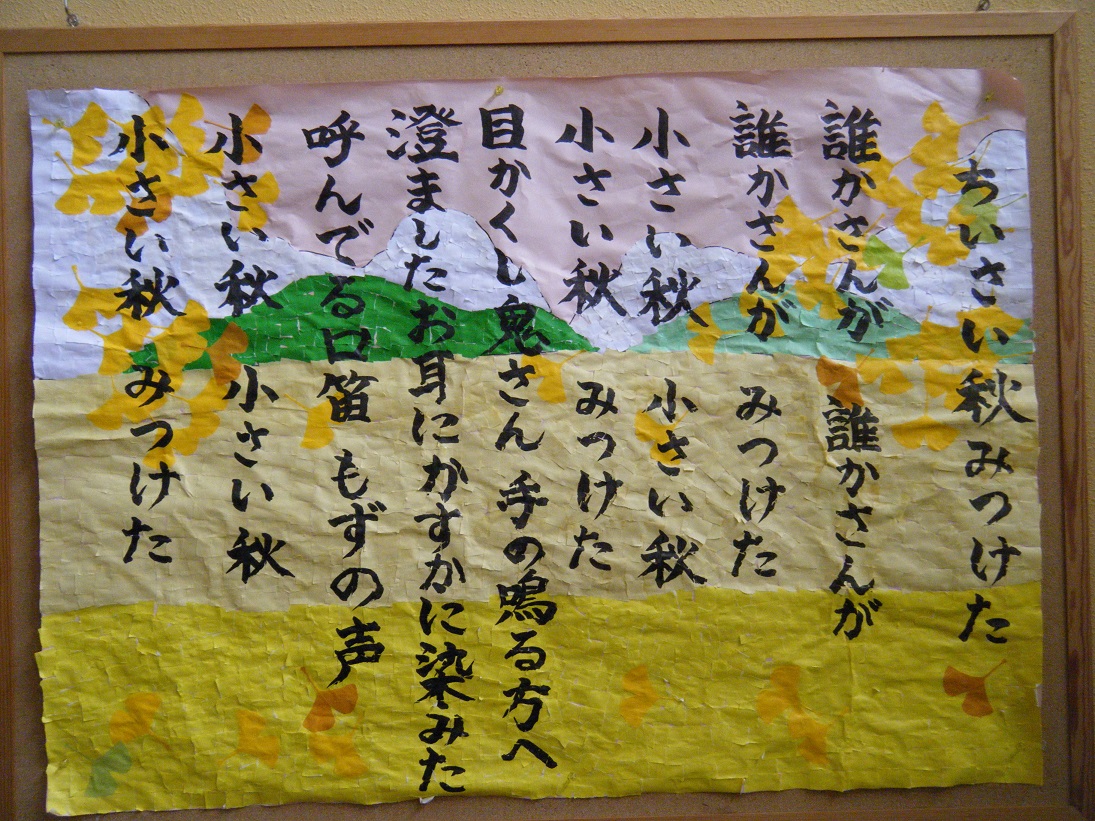 ちいさい秋みつけた
誰かさんが 誰かさんが
誰かさんが みつけた
小さい秋 小さい秋
小さい秋 みつけた
目かくし鬼さん 手の鳴る方へ
澄ましたお耳にかすかに染みた
呼んでる口笛 もずの声
小さい秋 小さい秋
小さい秋 みつけた